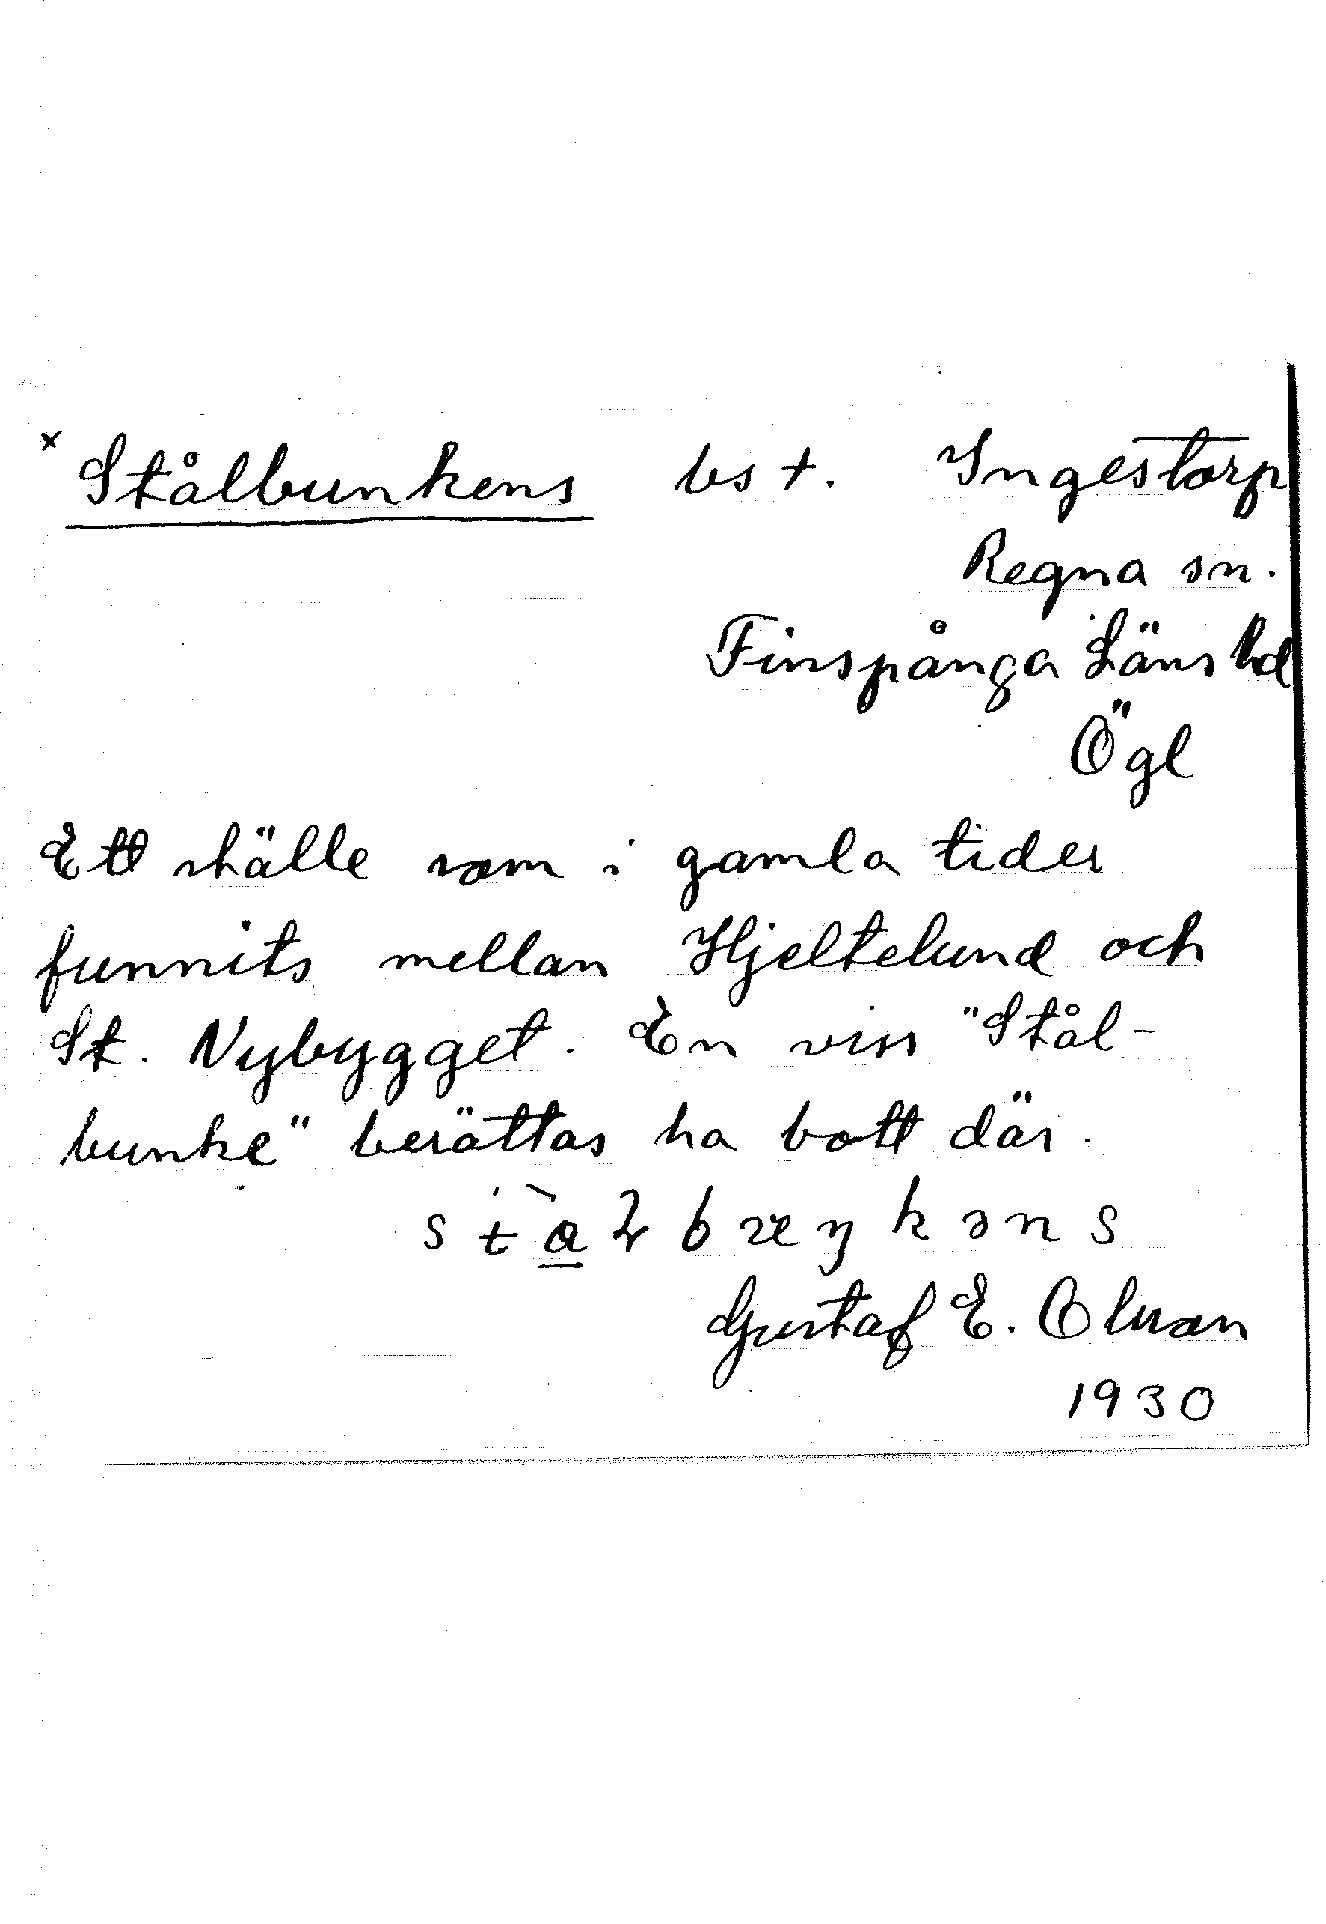 × Stålbunkens bs †. Ingestorp
Regna sn.
Finspånga Läns hd
Ögl
Ett ställe som i gamla tider
funnits mellan Hjeltelund och
St. Nybygget. En viss "Stål-
bunke" berättas ha bott där.
Gustaf E. Olsson
1930